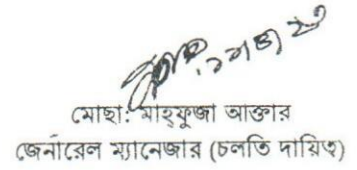 মোছা: মাহ্ফুজা আক্তার
জেনারেল ম্যানেজার (চলতি দায়িত্ব)